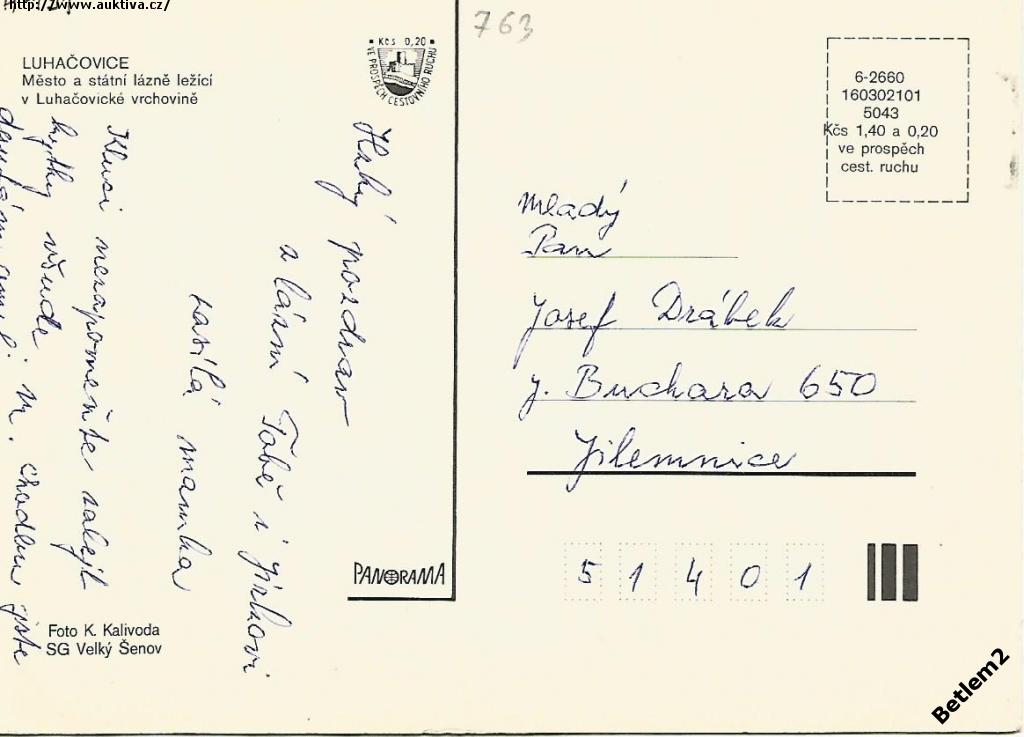 http://www.auktiva.cz/
763
LUHAČOVICE
Město a státní lázně ležící
v Luhačovické vrchovině
• Kčs 0,20 •
VE PROSPĚCH CESTOVNÍHO RUCHU
6-2660
160302101
5043
Kčs 1,40 a 0,20
ve prospěch
cest. ruchu
Hezký pozdrav
z lázní Tobě i Jirkovi
zasílá mamka
Kluci nezapomeňte zalejt
kytky všude
m. chodbu jste
Mladý
Pan
Josef Drábek
J. Buchara 650
Jilemnice
51401
PANORAMA
Foto K. Kalivoda
SG Velký Šenov
Betlem2